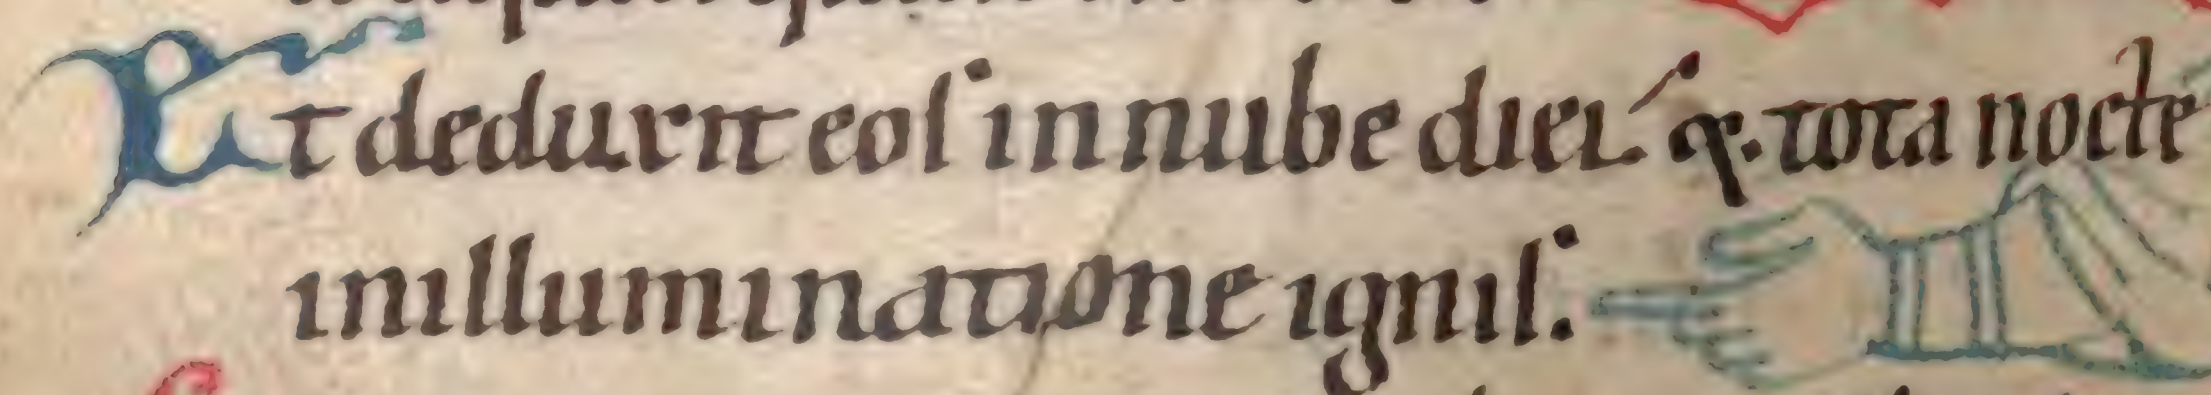 Et deduxit eos in nube diei q. tota nocte
in illuminatione ignis.